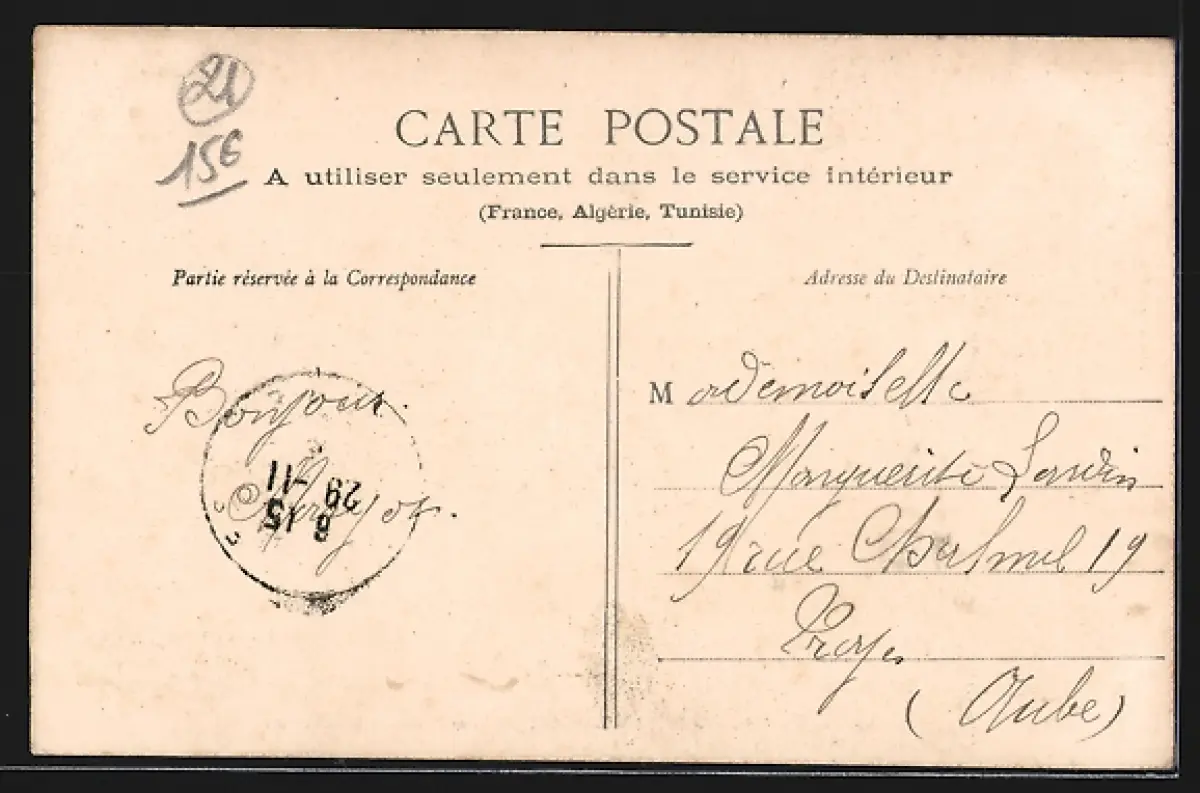 21
15€
CARTE POSTALE
A utiliser seulement dans le service intérieur
(France, Algérie, Tunisie)
Partie réservée à la Correspondance
Bonjour.
8 15
29 -11
Adresse du Destinataire
Mademoiselle
Marguerite
19 rue 19
Troyes
(Aube)